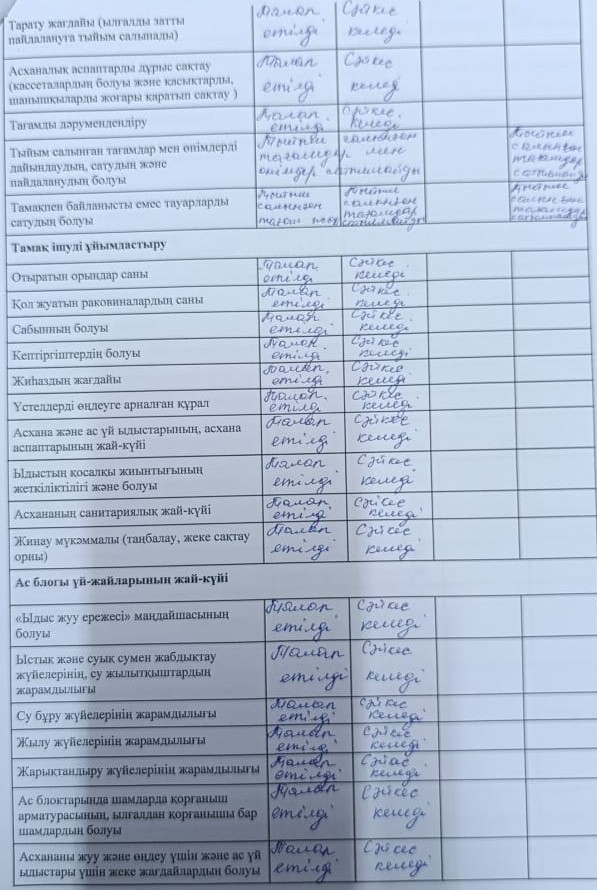 Тарату жағдайы (ылғалды затты пайдалануға тыйым салынады) Талап етілді Сәйкес келеді
Асханалық аспаптарды дұрыс сақтау (кассеталардың болуы және қасықтарды, шанышқыларды жоғары қаратып сақтау ) Талап етілді Сәйкес келеді
Тағамды дәрумендендіру Талап етілді Сәйкес келеді
Тыйым салынған тағамдар мен өнімдерді дайындаудың, сатудың және пайдаланудың болуы Тыйым салынған тағамдар мен өнімдер сатылмайды Тыйым салынған тағамдар сатылмайды
Тамақпен байланысты емес тауарларды сатудың болуы Тыйым салынған тағам жоқ Тыйым салынған тағамдар сатылмайды Тыйым салынған тағамдар сатылмайды
Тамақ ішуді ұйымдастыру
Отыратын орындар саны Талап етілді Сәйкес келеді
Қол жуатын раковиналардың саны Талап етілді Сәйкес келеді
Сабынның болуы Талап етілді Сәйкес келеді
Кептіргіштердің болуы Талап етілді Сәйкес келеді
Жиһаздың жағдайы Талап етілді Сәйкес келеді
Үстелдерді өңдеуге арналған құрал Талап етілді Сәйкес келеді
Асхана және ас үй ыдыстарының, асхана аспаптарының жай-күйі Талап етілді Сәйкес келеді
Ыдыстың қосалқы жиынтығының жеткіліктілігі және болуы Талап етілді Сәйкес келеді
Асхананың санитариялық жай-күйі Талап етілді Сәйкес келеді
Жинау мүкәммалы (таңбалау, жеке сақтау орны) Талап етілді Сәйкес келеді
Ас блогы үй-жайларының жай-күйі
«Ыдыс жуу ережесі» маңдайшасының болуы Талап етілді Сәйкес келеді
Ыстық және суық сумен жабдықтау жүйелерінің, су жылытқыштардың жарамдылығы Талап етілді Сәйкес келеді
Су бұру жүйелерінің жарамдылығы Талап етілді Сәйкес келеді
Жылу жүйелерінің жарамдылығы Талап етілді Сәйкес келеді
Жарықтандыру жүйелерінің жарамдылығы Талап етілді Сәйкес келеді
Ас блоктарында шамдарда қорғаныш арматурасының, ылғалдан қорғанышы бар шамдардың болуы Талап етілді Сәйкес келеді
Асхананы жуу және өңдеу үшін және ас үй ыдыстары үшін жеке жағдайлардың болуы Талап етілді Сәйкес келеді